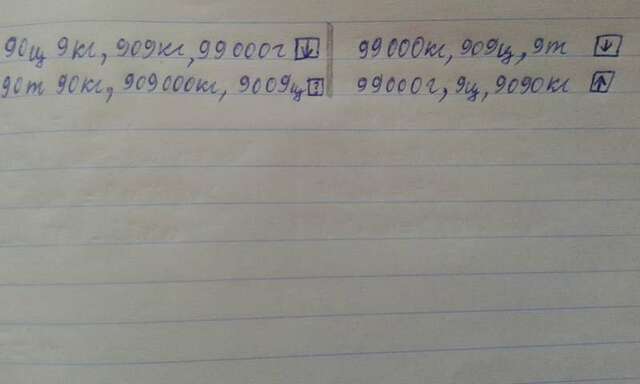 90ц 9кг, 909кг, 99000г ↓
90т 90кг, 909000кг, 9009ц ?
99000кг, 909ц, 9т ↓
99000г, 9ц, 9090кг ↑